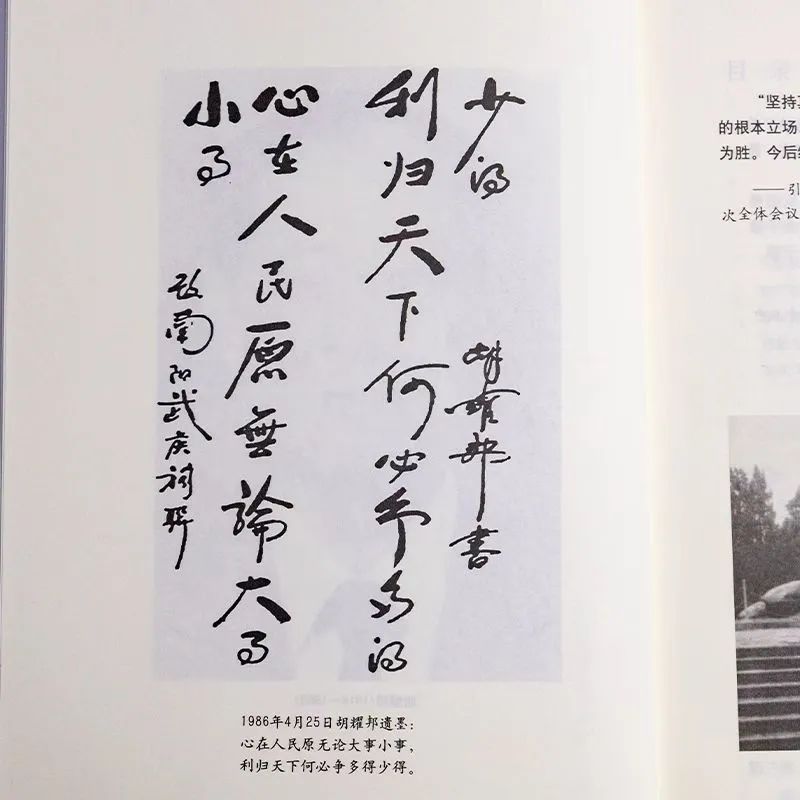 心在人民原無論大事
小事
改南阳武侯祠联
利归天下何必争多得
少得
胡耀邦書
1986年4月25日胡耀邦遗墨：
心在人民原无论大事小事，
利归天下何必争多得少得。
“坚持
的根本立场
为胜。今后
——引
次全体会议